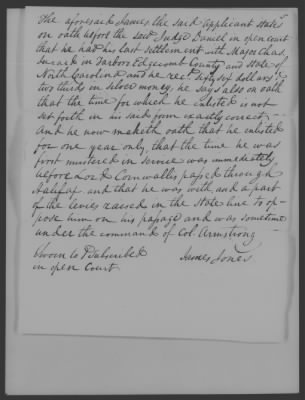 The aforesaid James the said applicant states
on oath before the said Judge Daniel in open court
that he had his last settlement with Major Chas.
in Tarboro Edgecomb County and State of
North Carolina and he recd. sixty six dollars &
two thirds in silver money, he says also on oath
that the time for which he enlisted is not
set forth in his said form exactly correct,
And he now maketh oath that he enlisted
for one year only, that the time he was
first mustered in service was immediately
before Lord Cornwallis passed through
Halifax and that he was with and a part
of the levies raised in the State line to op-
pose him on his passage and was sometime
under the command of Col Armstrong
Sworn to & Subscribed
James Jones
in open Court